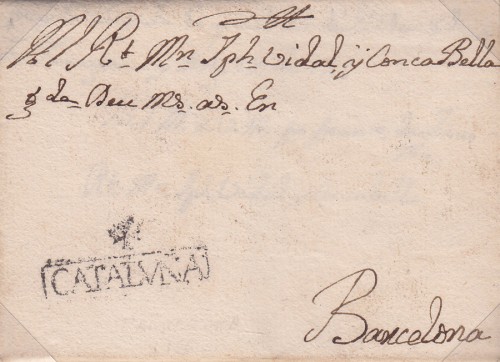 Al Rt. Mn. Jph. Vidal, ÿ Conca Bella
q de Deu Ms. as. En
4
CATALUÑA
Barcelona